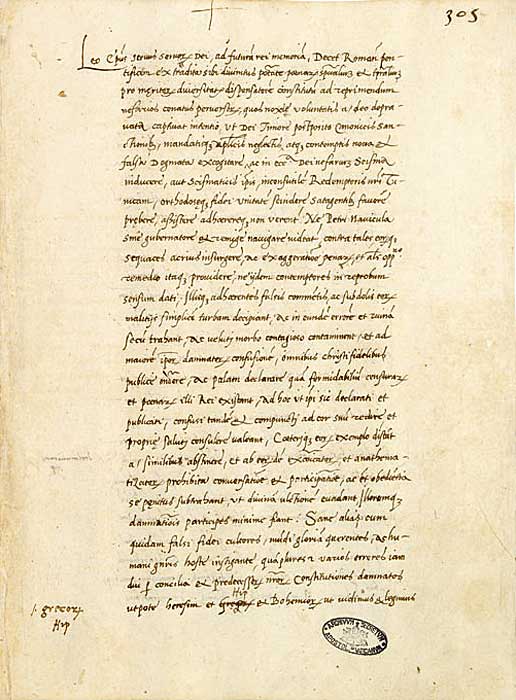 305
Leo Ep̄us servus servor̄ Dei, ad futurā rei memoriā, Decet Romanū pon-
tificem ex tradita sibi divinitus potāte penar̄ spūalium et tp̄ralium
pro meritor̄ diversitate dispensatorē constitutū ad reprimendum
nefarios conatus perversor̄, quos noxiē voluntatis a deo deprā-
vata captivat intentio, ut Dei Timore postposito Canonicis San-
ctionib, mandatisq̄ aplicis neglectis atq, contemptis nova et
falsa Dogmata excogitare, ac in eccā Dei nefarium Scisma
inducere, aut Scismaticis ipsis, inconsutilē Redemptoris nr̄i Tu-
nicam, orthodoxeq, fidei unitatē scindere Satagentib, favorē
prēbere, assistere adherereq, non verent̄, Ne Petri Navicula
sine gubernatore et remige navigare videat̄, contra tales eorq,
sequaces acrius insurgere, ac exaggeratione penar̄, et alio opp°
remedio itaq, providere, ne ijdem contemptores in reprobum
sensum dati, Illisq, adherentes falsis commētis, ac subdolis eor̄
malitijs simplicē turbam decipiant, ac in eundē errorē et ruinā
secū trahant, ac veluti morbo contagioso contaminent, et ad
maiorē ipsor̄ damnator̄ confusionē, omnibus christi fidelibus
publicē ondere, ac palam declarare quā formidabiliū censurar̄
et poenar̄ illi Rei existant, Ad hoc ut ipsi sic declarati et
publicati, confusi tandē et compuncti ad cor suū redire et
propriē saluti consulere valeant, Coeteriq, eor̄ exemplo discāt
a similibus abstinere, et ab eor̄dē excōicator̄ et anathema-
tizator̄ prohibita conversatione et participatione, ac et obedientia
se penitus subtrahant, ut divinā ultionē evadant Illorumq,
damnationis participes minime fiant: Sane alias cum
quidam falsi fidei cultores, mūdi gloriā querentes, ac hu-
mani gēnis hoste instigante, quāplures et varios errores iam
diu per concilia et predecessor̄ nror̄ Constitutiones damnatos
Hip
utpotē heresim et et Bohemior̄ ut vidimus et legimus
grecor̄
Hip